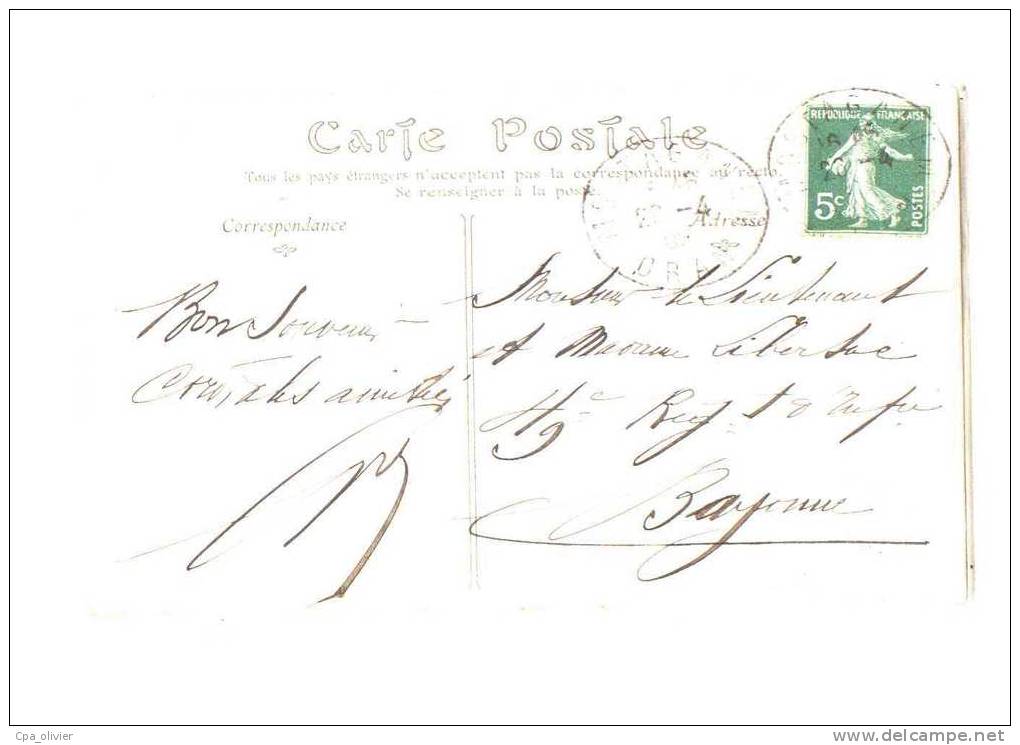 Carte Postale
Tous les pays étrangers n'acceptent pas la correspondance au recto.
Se renseigner à la poste.
REPUBLIQUE FRANÇAISE
5c
POSTES
-4
ORAN
Correspondance
Adresse
Bon Souvenir
Cordiales amitiés
Monsieur le Lieutenant
et Madame Libersac
49e Regt d'Infie
Bayonne
Cpa_olivier
delcampe.net